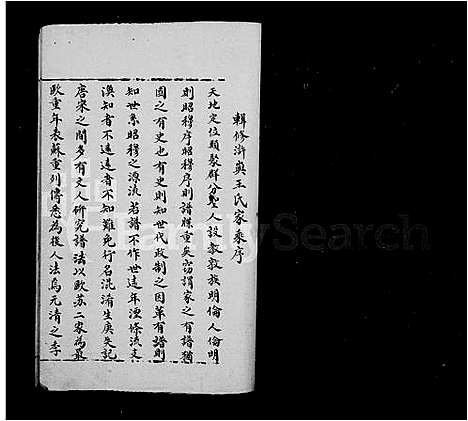 輯修澥奧王氏家乘序
天地定位類聚群分聖人設教敦族明倫人倫明
則昭穆序昭穆序則譜牒重矣竊謂家之有譜猶
國之有史也有史則知世代政制之因革有譜則
知世系昭穆之源流若譜不作世遠年湮條流支
漢知者不遠遠者不知難免行名混淆生庚失記
唐宋之間多有文人研究譜法以欧苏二家為最
欧重年表蘇重列傳悉為後人法焉元清之季
FamilySearch